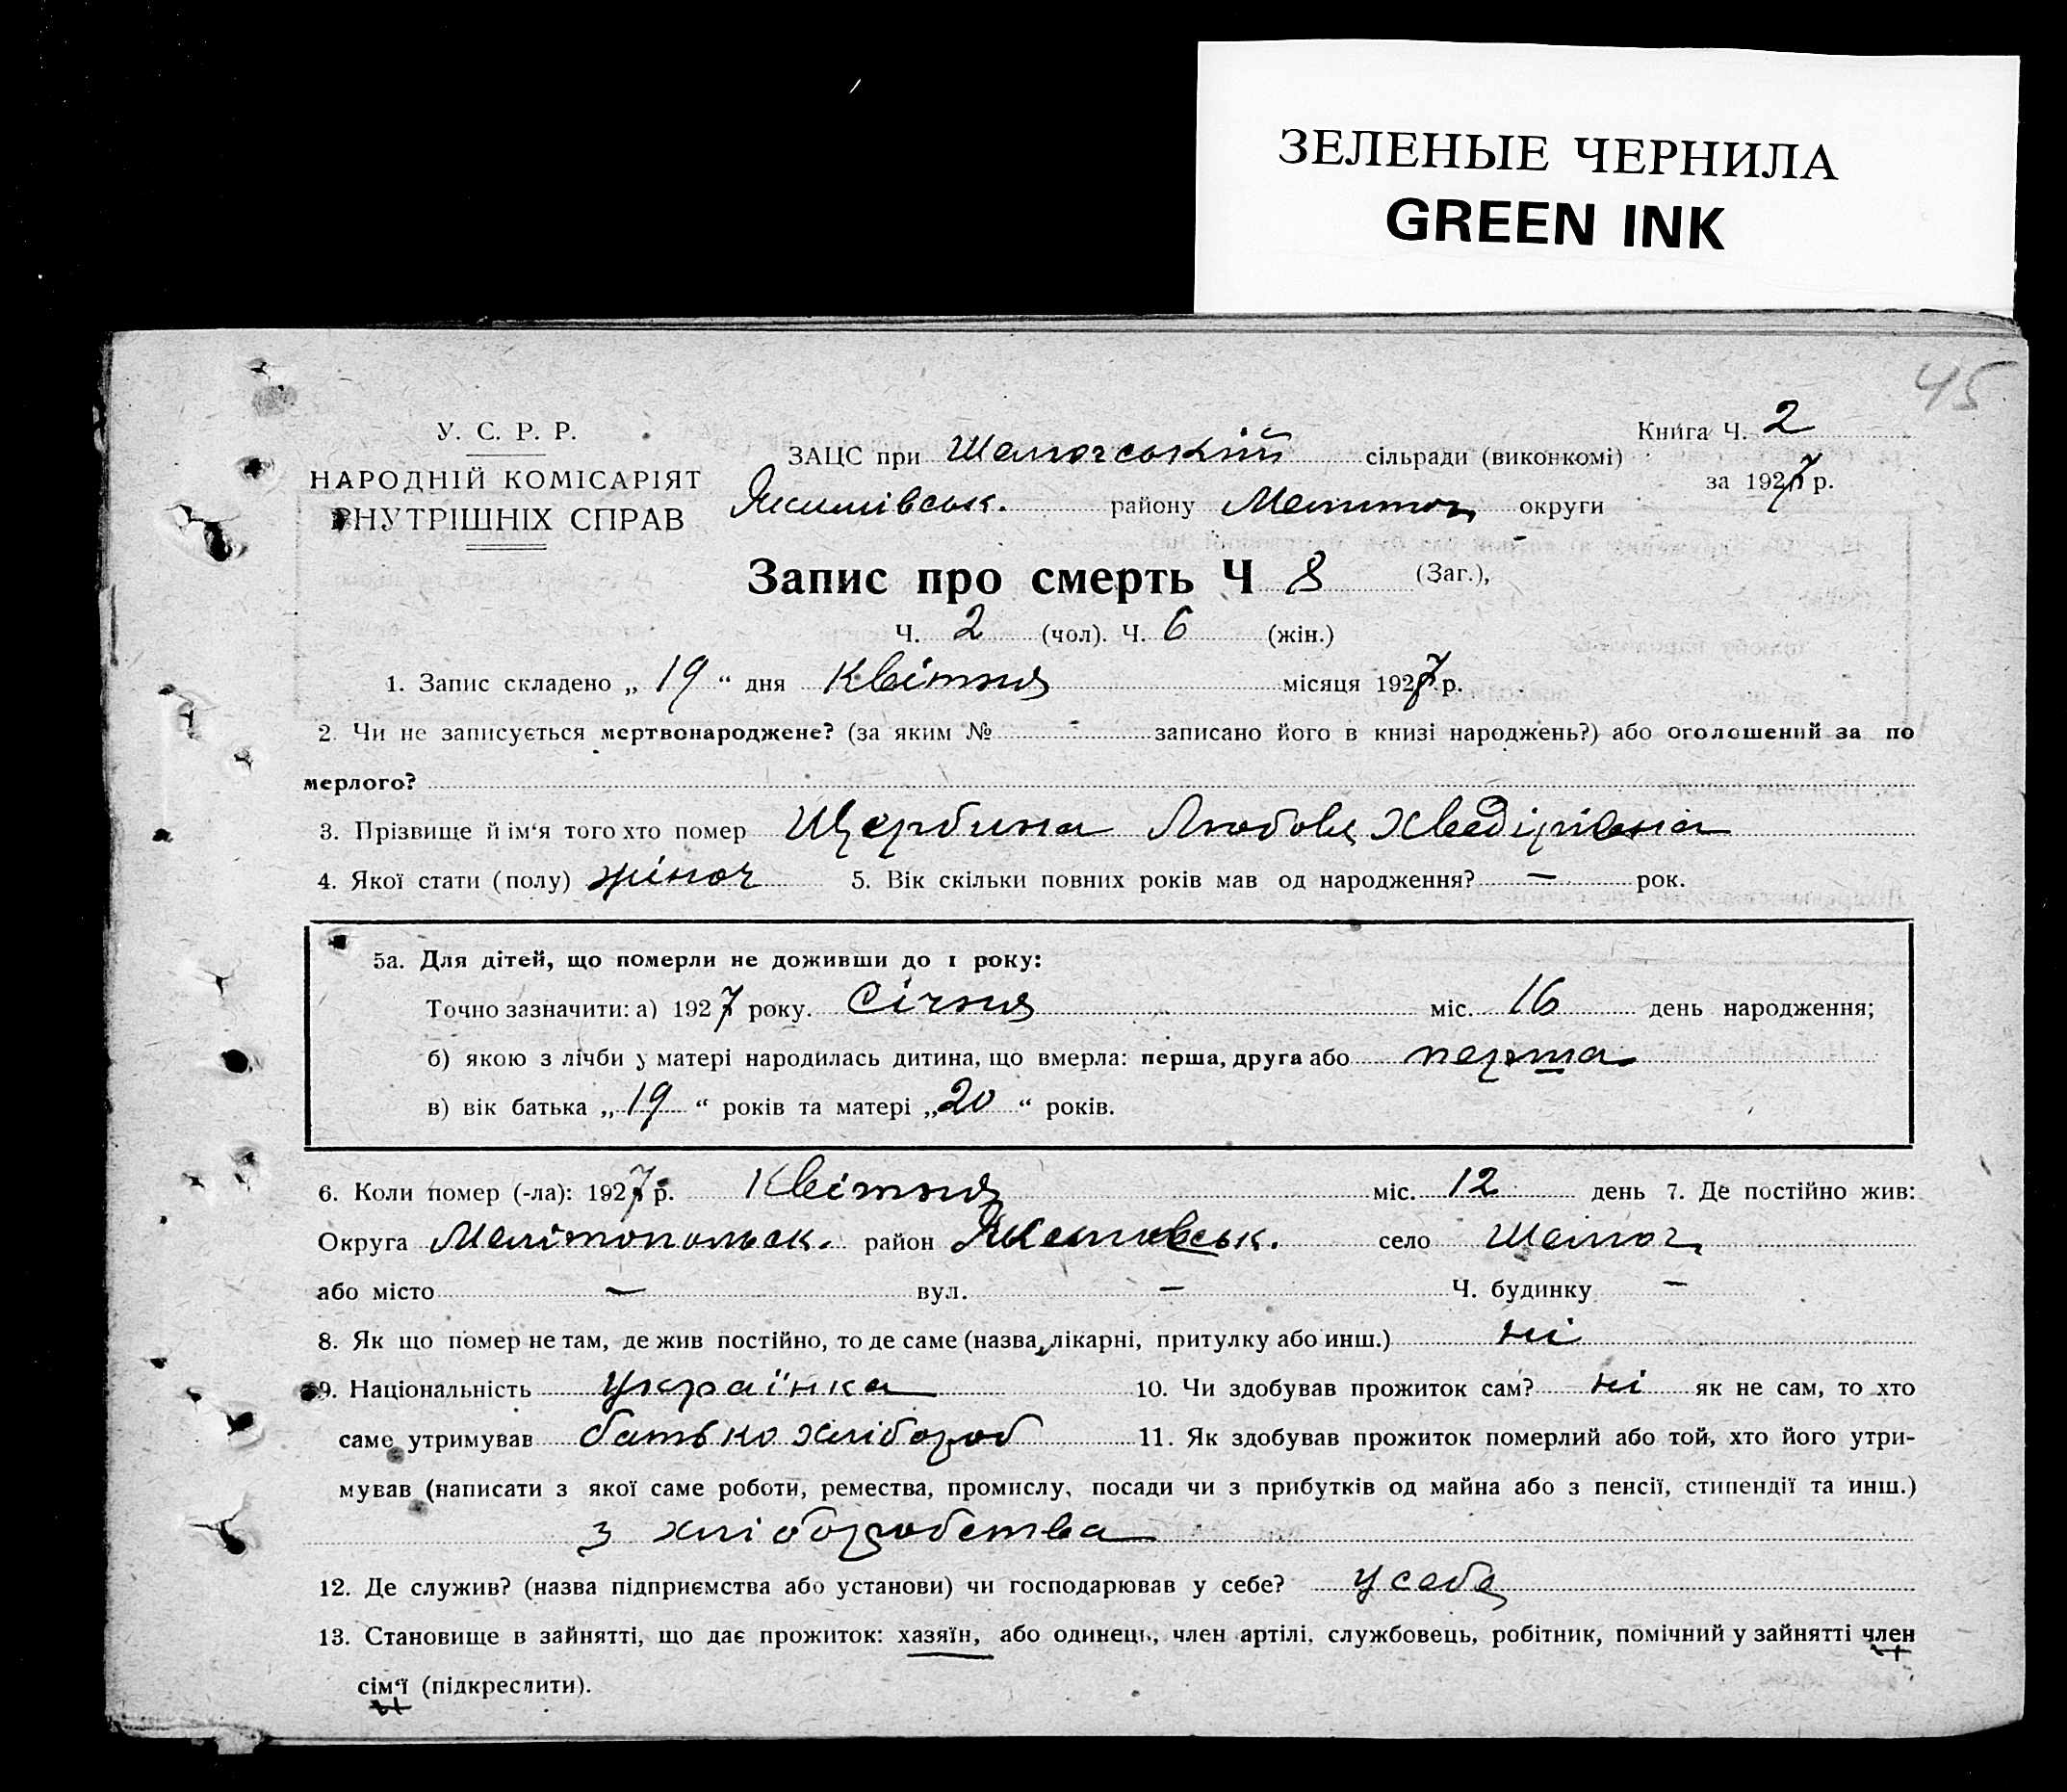 ЗЕЛЕНЫЕ ЧЕРНИЛА
GREEN INK
45
У. С. Р. Р.
НАРОДНІЙ КОМІСАРІЯТ
ВНУТРІШНІХ СПРАВ
Книга Ч. 2
за 1927 р.
ЗАЦС при сільради (виконкомі)
району округи
Запис про смерть Ч 8 (Заг.),
Ч. 2 (чол). Ч. 6 (жін.)
1. Запис складено „ 19 “ дня Квітня місяця 1927 р.
2. Чи не записується мертвонароджене? (за яким № - записано його в книзі народжень?) або оголошений за по
мерлого?
3. Прізвище й ім‘я того хто помер Щербина Любовь Хведірівна
4. Якої стати (полу) жіноч 5. Вік скільки повних років мав од народження? — рок.
5а. Для дітей, що померли не доживши до 1 року:
Точно зазначити: а) 1927 року. Січня міс. 16 день народження;
б) якою з лічби у матері народилась дитина, що вмерла: перша, друга або перша
в) вік батька „ 19 “ років та матері „ 20 “ років.
6. Коли помер (-ла): 1927 р. Квітня міс. 12 день 7. Де постійно жив:
Округа Мелітопольськ. район село
або місто — вул. — Ч. будинку —
8. Як що помер не там, де жив постійно, то де саме (назва, лікарні, притулку або инш.) ні
9. Національність українка 10. Чи здобував прожиток сам? ні як не сам, то хто
саме утримував батько хлібороб 11. Як здобував прожиток померлий або той, хто його утри-
мував (написати з якої саме роботи, ремества, промислу, посади чи з прибутків од майна або з пенсії, стипендії та инш.)
з хліборобства
12. Де служив? (назва підприємства або установи) чи господарював у себе? у себе
13. Становище в зайнятті, що дає прожиток: хазяїн, або одинець, член артілі, службовець, робітник, помічний у зайнятті член
сім‘ї (підкреслити).